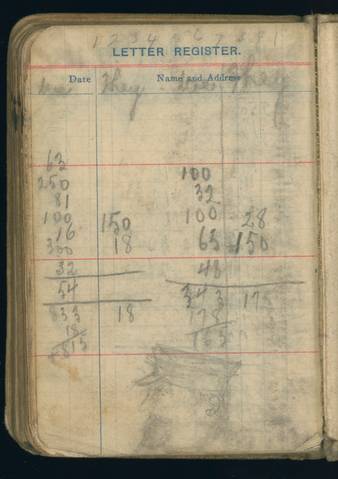 1 2 3 4 5 6 7 8 9 1
LETTER REGISTER.
Date Name and Address
they
63
250 100
81 32
100 150 100 28
16 18 63 150
300
32 48
54 343 175
833 18 178
18 165
815